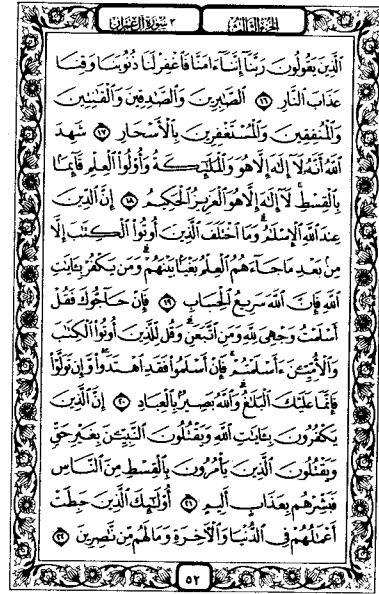 الجُزْءُ الثَّالِثُ
٣ سُورَةُ آلِ عِمْرَان
ٱلَّذِينَ يَقُولُونَ رَبَّنَآ إِنَّنَآ ءَامَنَّا فَٱغْفِرْ لَنَا ذُنُوبَنَا وَقِنَا
عَذَابَ ٱلنَّارِ ١٦ ٱلصَّٰبِرِينَ وَٱلصَّٰدِقِينَ وَٱلْقَٰنِتِينَ
وَٱلْمُنفِقِينَ وَٱلْمُسْتَغْفِرِينَ بِٱلْأَسْحَارِ ١٧ شَهِدَ
ٱللَّهُ أَنَّهُۥ لَآ إِلَٰهَ إِلَّا هُوَ وَٱلْمَلَٰٓئِكَةُ وَأُو۟لُوا۟ ٱلْعِلْمِ قَآئِمًۢا
بِٱلْقِسْطِ ۚ لَآ إِلَٰهَ إِلَّا هُوَ ٱلْعَزِيزُ ٱلْحَكِيمُ ١٨ إِنَّ ٱلدِّينَ
عِندَ ٱللَّهِ ٱلْإِسْلَٰمُ ۗ وَمَا ٱخْتَلَفَ ٱلَّذِينَ أُوتُوا۟ ٱلْكِتَٰبَ إِلَّا
مِنۢ بَعْدِ مَا جَآءَهُمُ ٱلْعِلْمُ بَغْيًۢا بَيْنَهُمْ ۗ وَمَن يَكْفُرْ بِـَٔايَٰتِ
ٱللَّهِ فَإِنَّ ٱللَّهَ سَرِيعُ ٱلْحِسَابِ ١٩ فَإِنْ حَآجُّوكَ فَقُلْ
أَسْلَمْتُ وَجْهِىَ لِلَّهِ وَمَنِ ٱتَّبَعَنِ ۗ وَقُل لِّلَّذِينَ أُوتُوا۟ ٱلْكِتَٰبَ
وَٱلْأُمِّيِّـۧنَ ءَأَسْلَمْتُمْ ۚ فَإِنْ أَسْلَمُوا۟ فَقَدِ ٱهْتَدَوا۟ ۖ وَّإِن تَوَلَّوْا۟
فَإِنَّمَا عَلَيْكَ ٱلْبَلَٰغُ ۗ وَٱللَّهُ بَصِيرٌۢ بِٱلْعِبَادِ ٢٠ إِنَّ ٱلَّذِينَ
يَكْفُرُونَ بِـَٔايَٰتِ ٱللَّهِ وَيَقْتُلُونَ ٱلنَّبِيِّـۧنَ بِغَيْرِ حَقٍّ
وَيَقْتُلُونَ ٱلَّذِينَ يَأْمُرُونَ بِٱلْقِسْطِ مِنَ ٱلنَّاسِ
فَبَشِّرْهُم بِعَذَابٍ أَلِيمٍ ٢١ أُو۟لَٰٓئِكَ ٱلَّذِينَ حَبِطَتْ
أَعْمَٰلُهُمْ فِى ٱلدُّنْيَا وَٱلْءَاخِرَةِ وَمَا لَهُم مِّن نَّٰصِرِينَ ٢٢
٥٢